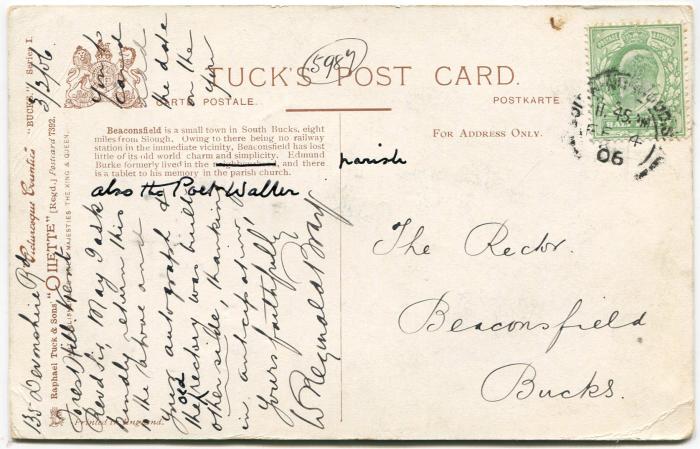 TUCK'S POST CARD.
(5987)
CARTE POSTALE.
POSTKARTE
FOR ADDRESS ONLY.
Beaconsfield is a small town in South Bucks, eight
miles from Slough. Owing to there being no railway
station in the immediate vicinity, Beaconsfield has lost
little of its old world charm and simplicity. Edmund
Burke formerly lived in the and there
is a tablet to his memory in the parish church.
parish
also the Poet Waller
The Rector.
Beaconsfield
Bucks.
135 Devonshire Rd
Forest Hill Kent
3/2/06
Revd Sir, May I ask
kindly return this
in the above ant
your autograph &
the date
on the
the old rectory was built
other side, thanking
you
in anticipation,
Yours faithfully
W Reginald Bray
Raphael Tuck & Sons' "OILETTE" [Regd.] Postcard 7392.
Picturesque Counties "BUCKS." Series I.
MAJESTIES THE KING & QUEEN.
Printed in England.
HALF
11 45 AM
FE 4
06